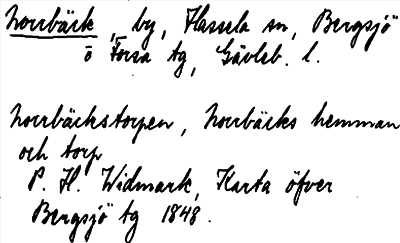 Norrbäck, by, Hassela sn, Bergsjö
o Forsa tg, Gävleb. l.
Norrbäckstorpen, Norrbäcks hemman
och torp
P. H. Widmark, Karta öfver
Bergsjö tg 1848.